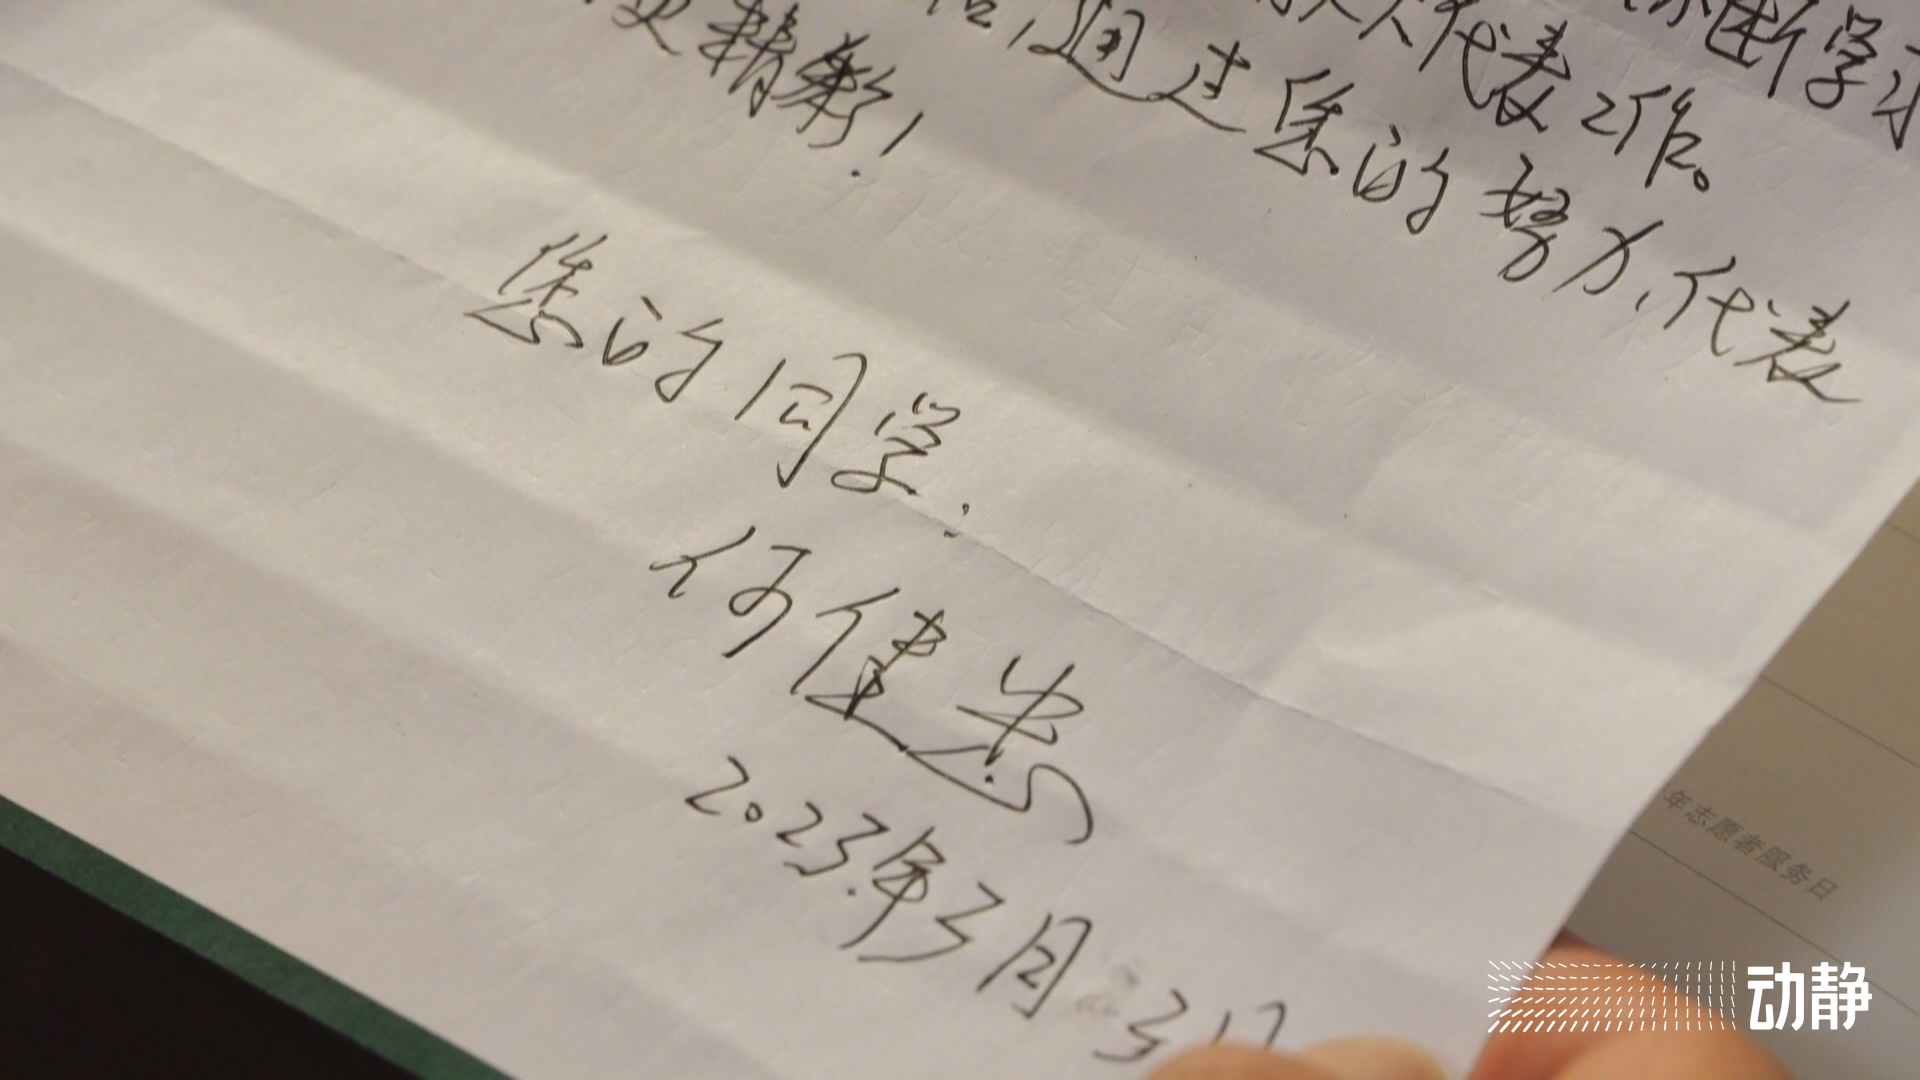 断学习
代表工作。
通过您的努力,代表
更精彩!
您的同学:
何健忠
2023年3月3日
年志愿者服务日
动静